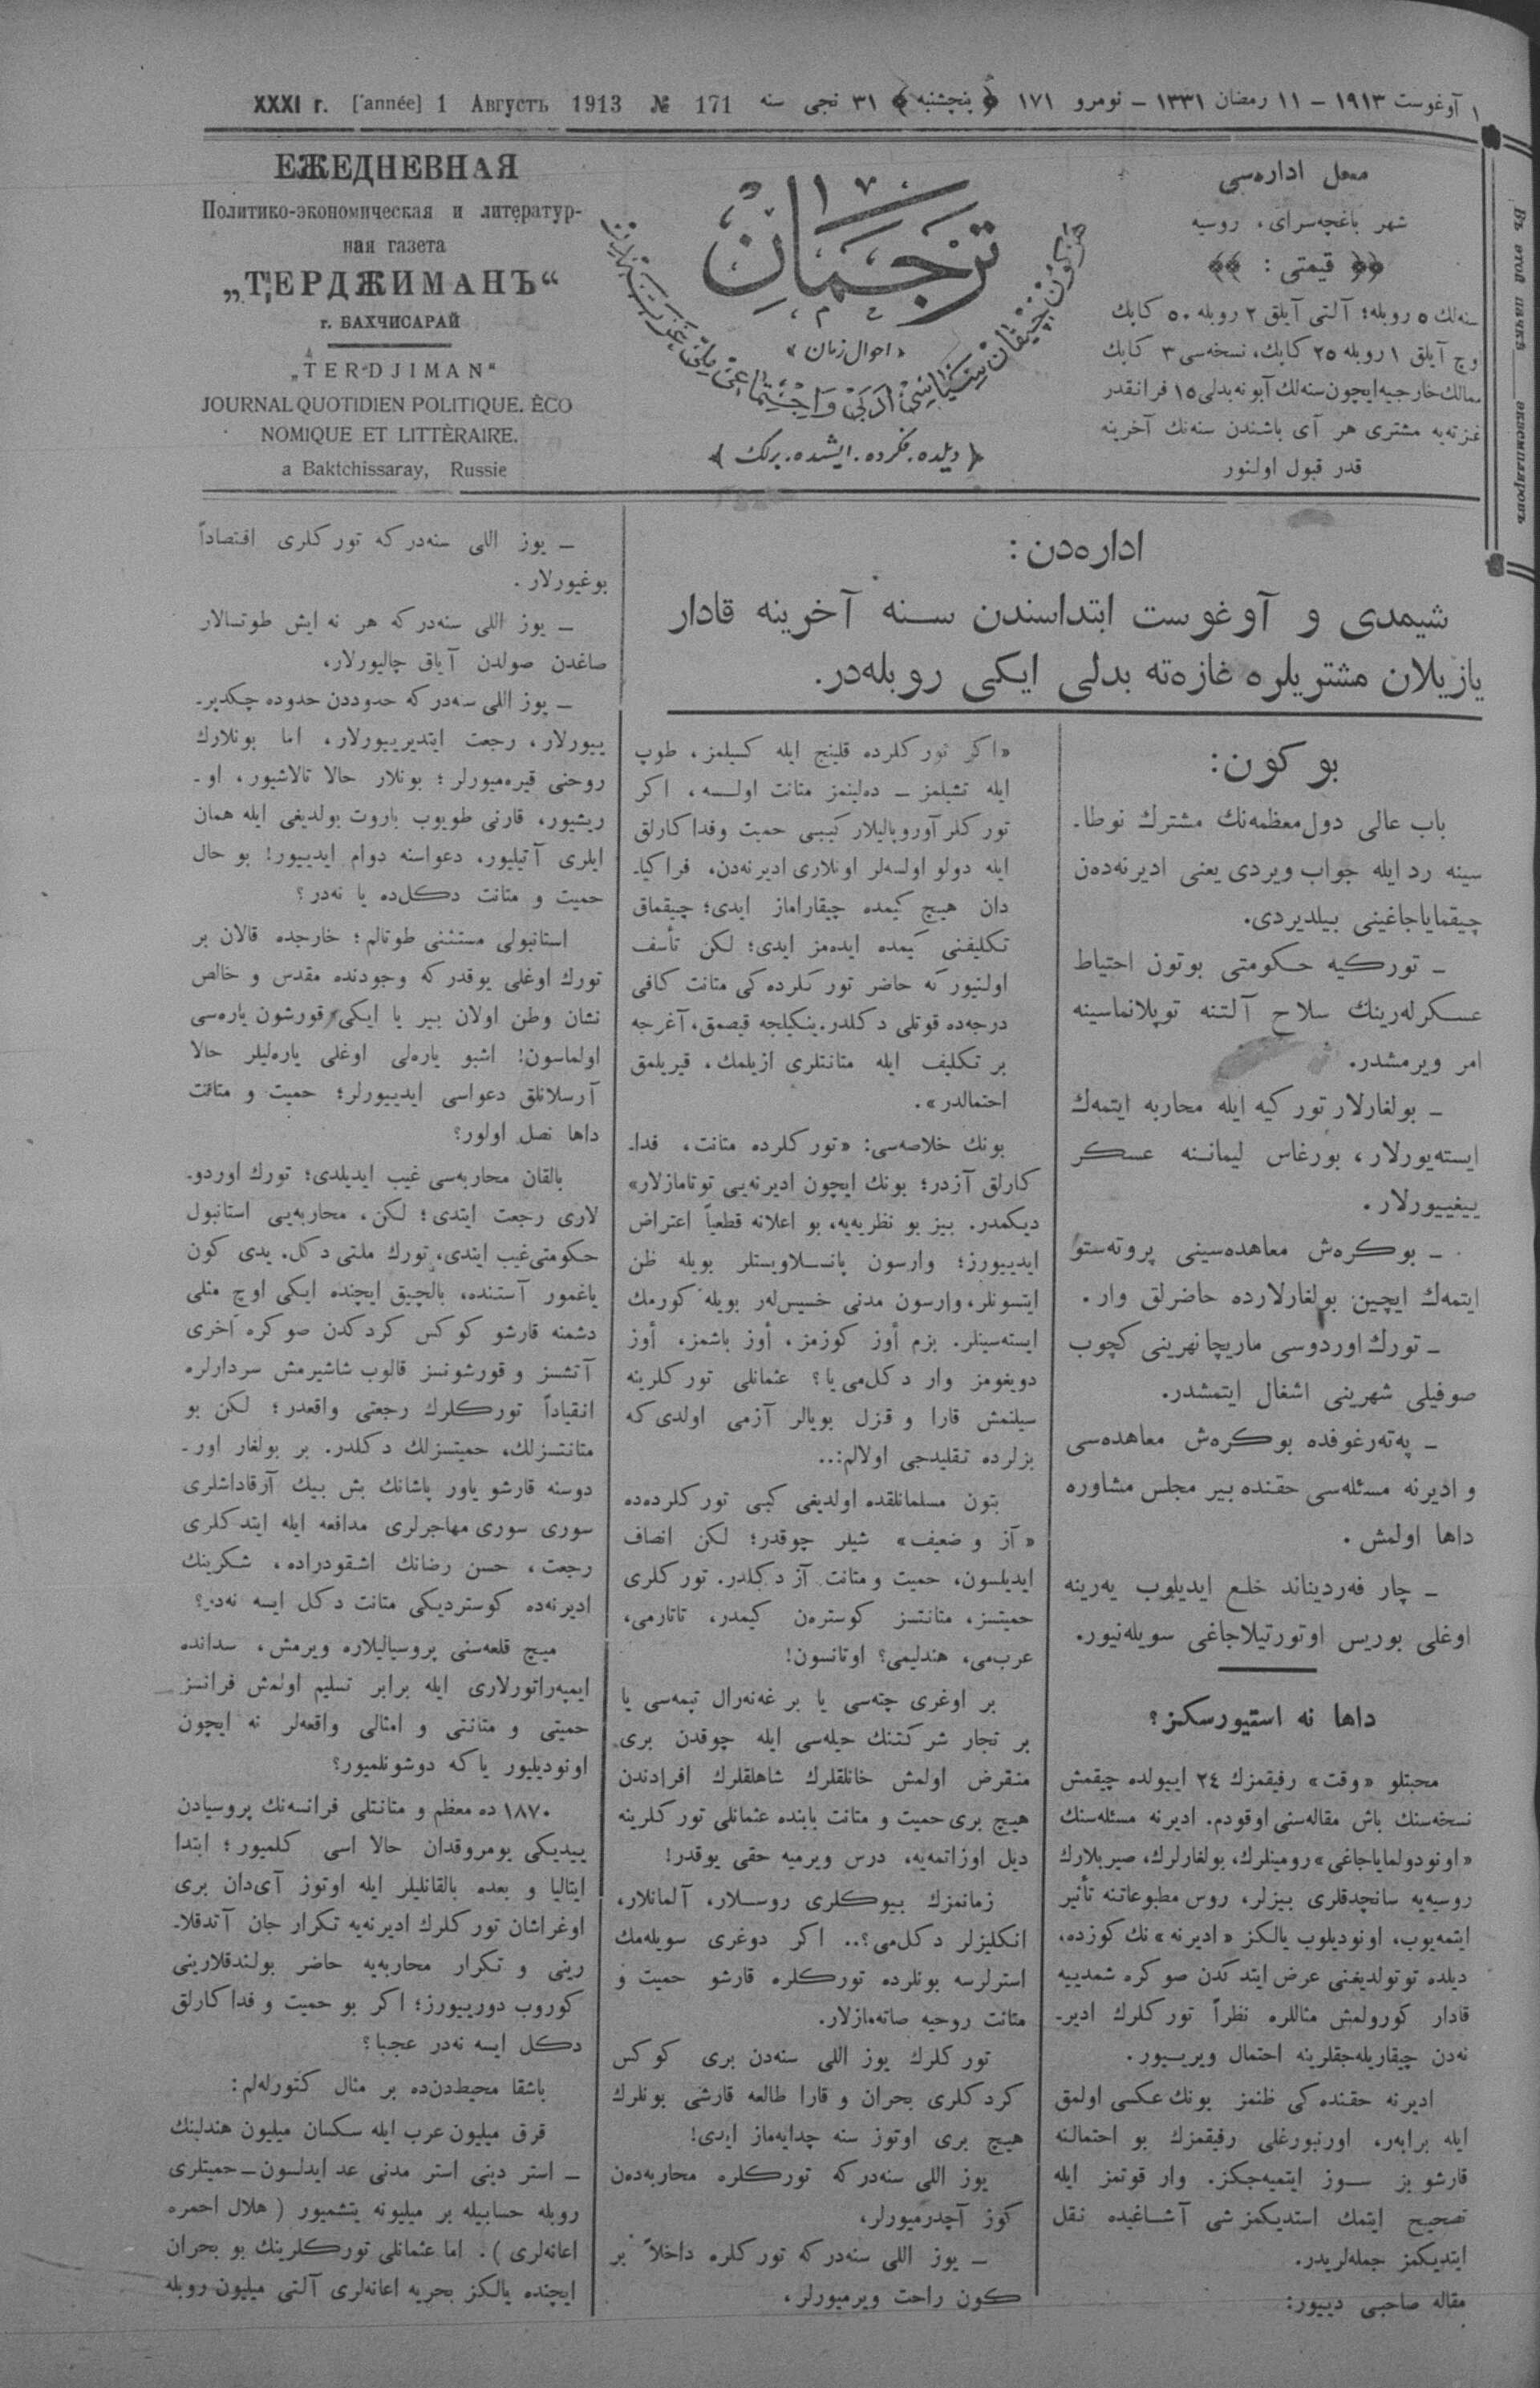 ١ آوغوست ١٩١٣ – ١١ رمضان ١٣٣١ – نومرو ١٧١ ﴿ پنچشنبه ﴾ ٣١ نجی سنه
XXXI г. [année] 1 Августъ 1913 № 171
محل اداره‌سی
شهر باغچه‌سرای، روسیه
قیمتی :
سنه‌لك ٥ روبله؛ آلتی آیلق ٢ روبله ٥٠ كاپك
وچ آیلق ١ روبله ٢٥ كاپك، نسخه‌سی ٣ كاپك
ممالك خارجیه ایچون سنه‌لك آبونه بدلی ١٥ فرانقدر
غزته‌یه مشتری هر آی باشندن سنه‌نك آخرینه
قدر قبول اولنور
ترجمان
« احوال زمان »
﴿ دیلده. فكرده. ایشده. برلك ﴾
ЕЖЕДНЕВНАЯ
Политико-экономическая и литератур-
ная газета
„ТЕРДЖИМАНЪ“
г. БАХЧИСАРАЙ
„TERDJIMAN“
JOURNAL QUOTIDIEN POLITIQUE. ÈCO
NOMIQUE ET LITTÈRAIRE.
a Baktchissaray, Russie
اداره‌دن :
شیمدی و آوغوست ابتداسندن سنه آخرینه قادار
یازیلان مشتریلره غازه‌ته بدلی ایكی روبله‌در.
بو كون :
باب عالی دول معظمه‌نك مشترك نوطا-
سینه رد ایله جواب ویردی یعنی ادیرنه‌دەن
چیقمایاجاغینی بیلدیردی.
– توركیه حكومتی بوتون احتیاط
عسكرلەرینك سلاح آلتنه توپلانماسینه
امر ویرمشدر.
– بولغارلار توركیه ایله محاربه ایتمه‌ك
ایسته‌یورلار، بورغاس لیماننه عسكر
ییغییورلار.
– بوكره‌ش معاهده‌سینی پروته‌ستو
ایتمه‌ك ایچین بولغارلارده حاضرلق وار.
– تورك اوردوسی ماریچا نهرینی كچوب
صوفیلی شهرینی اشغال ایتمشدر.
– په‌ته‌رغوفده بوكره‌ش معاهده‌سی
و ادیرنه مسئله‌سی حقنده بیر مجلس مشاوره
داها اولمش.
– چار فه‌ردیناند خلع ایدیلوب یه‌رینه
اوغلی بوریس اوتورتیلاجاغی سویله‌نیور.
داها نه استیورسكز؟
محبتلو «وقت» رفیقمزك ٢٤ اییولده چیقمش
نسخه‌سنك باش مقاله‌سنی اوقودم. ادیرنه مسئله‌سنك
«اونودولمایاجاغی» رومینلرك، بولغارلرك، صیربلارك
روسیه‌یه سانچدقلری بیزلر، روس مطبوعاتنه تأثیر
ایتمه‌یوب، اونودیلوب یالكز «ادیرنه» نك كوزده،
دیلده توتولدیغنی عرض ایتدكدن صوكره شمدییه
قادار كورولمش مثاللره نظراً توركلرك ادیر-
نه‌دن چیقاریله‌جقلرینه احتمال ویرییور.
ادیرنه حقنده كی ظنمز بونك عكسی اولمق
ایله برابر، اورنبورغلی رفیقمزك بو احتمالنه
قارشو بز سوز ایتمیه‌جكز. وار قوتمز ایله
تصحیح ایتمك استدیكمز شی آشاغیده نقل
ایتدیكمز جمله‌لریدر.
مقاله صاحبی دییور:
«اكر توركلرده قلینج ایله كسیلمز، طوپ
ایله تشیلمز – ده‌لینمز متانت اولسه، اكر
توركلر آوروپالیلار كیبی حمیت وفداكارلق
ایله دولو اولسه‌لر اونلاری ادیرنه‌دن، فراكیا-
دان هیچ كیمده چیقاراماز ایدی؛ چیقماق
تكلیفنی كیمده ایده‌مز ایدی؛ لكن تأسف
اولنیور كه حاضر توركلرده كی متانت كافی
درجه‌ده قوتلی دكلدر. ینكیلجه قیصمق، آغرجه
بر تكلیف ایله متانتلری ازیلمك، قیریلمق
احتمالدر».
بونك خلاصه‌سی: «توركلرده متانت، فدا-
كارلق آزدر؛ بونك ایچون ادیرنه‌یی توتامازلار»
دیكمدر. بیز بو نظریه‌یه، بو اعلانه قطعیاً اعتراض
ایدییورز؛ وارسون پانسلاویستلر بویله ظن
ایتسونلر، وارسون مدنی خسیس‌لەر بویله كورمك
ایسته‌سینلر. بزم أوز كوزمز، أوز باشمز، أوز
دویغومز وار دكل‌می یا؟ عثمانلی توركلرینه
سیلنمش قارا و قزل بویالر آزمی اولدی كه
بزلرده تقلیدجی اولالم:..
بتون مسلمانلقده اولدیغی كبی توركلرده‌ده
«آز و ضعیف» شیلر چوقدر؛ لكن انصاف
ایدیلسون، حمیت و متانت آز دكلدر. توركلری
حمیتسز، متانتسز كوسترەن كیمدر، تاتارمی،
عرب‌می، هندلیمی؟ اوتانسون!
بر اوغری چته‌سی یا بر غه‌نه‌رال تپمه‌سی یا
بر تجار شركتنك حیله‌سی ایله چوقدن بری
منقرض اولمش خانلقلرك شاهلقلرك افرادندن
هیچ بری حمیت و متانت بابنده عثمانلی توركلرینه
دیل اوزاتمه‌یه، درس ویرمیه حقی یوقدر!
زمانمزك بیوكلری روسلار، آلمانلار،
انكلیزلر دكل‌می؟.. اكر دوغری سویله‌مك
استرلرسه بونلرده توركلره قارشو حمیت و
متانت روحیه صاته‌مازلار.
توركلرك یوز اللی سنه‌دن بری كوكس
كردكلری بحران و قارا طالعه قارشی بونلرك
هیچ بری اوتوز سنه چدایه‌ماز ایدی!
یوز اللی سنه‌در كه توركلره محاربه‌دەن
كوز آچدرمیورلر،
– یوز اللی سنه‌در كه توركلره داخلاً بر
كون راحت ویرمیورلر،
– یوز اللی سنه‌در كه توركلری اقتصاداً
بوغیورلار.
– یوز اللی سنه‌در كه هر نه ایش طوتسالار
صاغدن صولدن آیاق چالیورلار،
– یوز اللی سنه‌در كه حدوددن حدوده چكدیر-
ییورلار، رجعت ایتدیرییورلار، اما بونلارك
روحنی قیره‌میورلر؛ بونلار حالا تالاشیور، او-
ریشیور، قارنی طویوب باروت بولدیغی ایله همان
ایلری آتیلیور، دعواسنه دوام ایدییور! بو حال
حمیت و متانت دكل‌ده یا نه‌در؟
استانبولی مستثنی طوتالم؛ خارجده قالان بر
تورك اوغلی یوقدر كه وجودنده مقدس و خالص
نشان وطن اولان بیر یا ایكی قورشون یاره‌سی
اولماسون! اشبو یاره‌لی اوغلی یاره‌لیلر حالا
آرسلانلق دعواسی ایدییورلر؛ حمیت و متانت
داها نصل اولور؟
بالقان محاربه‌سی غیب ایدیلدی؛ تورك اوردو-
لاری رجعت ایتدی؛ لكن، محاربه‌یی استانبول
حكومتی غیب ایتدی، تورك ملتی دكل. یدی كون
یاغمور آستنده، بالچیق ایچنده ایكی اوچ مثلی
دشمنه قارشو كوكس كردكدن صوكره آخری
آتشسز و قورشونسز قالوب شاشیرمش سردارلره
انقیاداً توركلرك رجعتی واقعدر؛ لكن بو
متانتسزلك، حمیتسزلك دكلدر. بر بولغار اور-
دوسنه قارشو یاور پاشانك بش بیك آرقاداشلری
سوری سوری مهاجرلری مدافعه ایله ایتدكلری
رجعت، حسن رضانك اشقودراده، شكرینك
ادیرنه‌ده كوستردیكی متانت دكل ایسه نه‌در؟
میچ قلعه‌سنی پروسیالیلاره ویرمش، سدانده
ایمپه‌راتورلاری ایله برابر تسلیم اولمش فرانسز
حمیتی و متانتی و امثالی واقعه‌لر نه ایچون
اونودیلیور یاكه دوشونلمیور؟
١٨٧٠ ده معظم و متانتلی فرانسه‌نك پروسیادن
ییدیكی یومروقدان حالا اسی كلمیور؛ ابتدا
ایتالیا و بعده بالقانلیلر ایله اوتوز آی‌دان بری
اوغراشان توركلرك ادیرنه‌یه تكرار جان آتدقلا-
رینی و تكرار محاربه‌یه حاضر بولندقلارینی
كوروب دورییورز؛ اكر بو حمیت و فداكارلق
دكل ایسه نه‌در عجبا؟
باشقا محیط‌دن‌ده بر مثال كتورله‌لم:
قرق میلیون عرب ایله سكسان میلیون هندلینك
– استر دینی استر مدنی عد ایدلسون – حمیتلری
روبله حسابیله بر میلیونه یتشمیور (هلال احمره
اعانه‌لری). اما عثمانلی توركلرینك بو بحران
ایچنده یالكز بحریه اعانه‌لری آلتی میلیون روبله